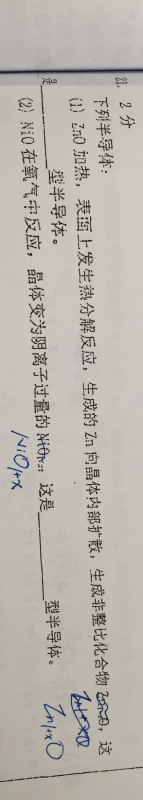 21. 2 分
下列半导体：
(1) ZnO 加热，表面上发生热分解反应，生成的 Zn 向晶体内部扩散，生成非整比化合物 这
是 型半导体。
(2) NiO 在氧气中反应，晶体变为阴离子过量的 这是 型半导体。
NiO1+x
Zn1+xO